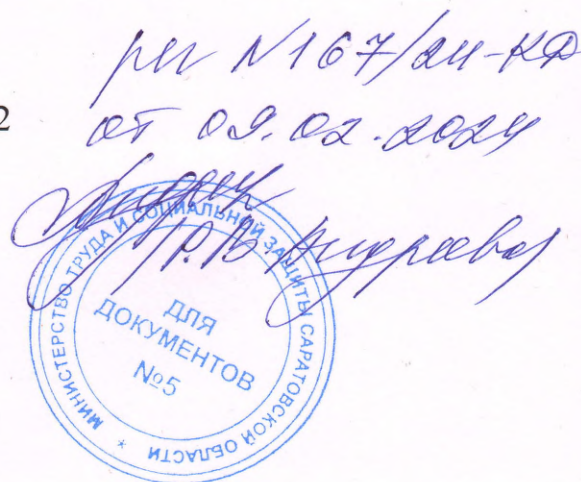 рег N 167/24-КД
2
от 09.02.2024
Р.В Андреева
МИНИСТЕРСТВО ТРУДА И СОЦИАЛЬНОЙ ЗАЩИТЫ САРАТОВСКОЙ ОБЛАСТИ *
ДЛЯ
ДОКУМЕНТОВ
№5